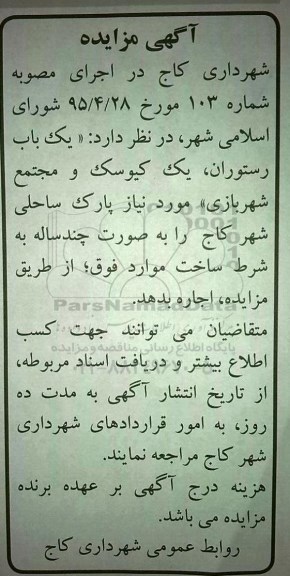 آگهی مزایده
شهرداری کاج در اجرای مصوبه
شماره ۱۰۳ مورخ ۹۵/۴/۲۸ شورای
اسلامی شهر، در نظر دارد: « یک باب
رستوران، یک کیوسک و مجتمع
شهربازی» مورد نیاز پارک ساحلی
شهر کاج را به صورت چندساله به
شرط ساخت موارد فوق؛ از طریق
مزایده، اجاره بدهد.
ParsNamadData
متقاضیان می توانند جهت کسب
اطلاع بیشتر و دریافت اسناد مربوطه،
پایگاه اطلاع رسانی مناقصه و مزایده
از تاریخ انتشار آگهی به مدت ده
روز، به امور قراردادهای شهرداری
شهر کاج مراجعه نمایند.
هزینه درج آگهی بر عهده برنده
مزایده می باشد.
روابط عمومی شهرداری کاج